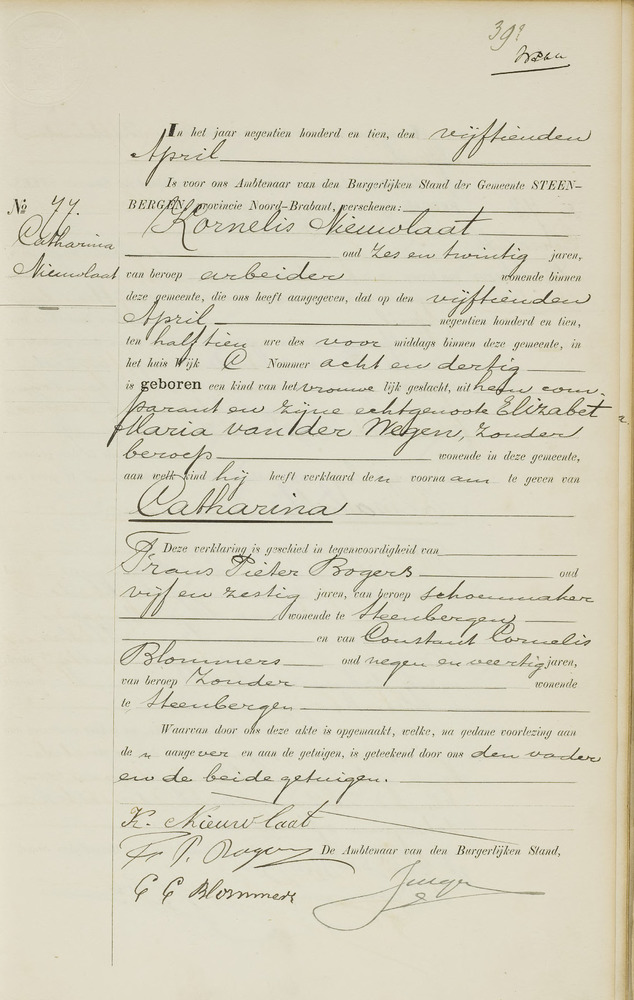 39
In het jaar negentien honderd en tien, den vijftienden
April
Is voor ons Ambtenaar van den Burgerlijken Stand der Gemeente STEEN-
BERGEN, provincie Noord-Brabant, verschenen:
No 77.
Catharina
Nieuwlaat
Kornelis Nieuwlaat
oud zes en twintig jaren,
van beroep arbeider wonende binnen
deze gemeente, die ons heeft aangegeven, dat op den vijftienden
April negentien honderd en tien,
ten half tien ure des voor middags binnen deze gemeente, in
het huis Wijk C Nommer acht en dertig
is geboren een kind van het vrouwe lijk geslacht, uit hem com-
parant en zijne echtgenoote Elizabet
Maria van der Wegen, zonder
beroep wonende in deze gemeente,
aan welk kind hij heeft verklaard den voornaam te geven van
Catharina
Deze verklaring is geschied in tegenwoordigheid van
Frans Pieter Bogers oud
vijf en zestig jaren, van beroep schoenmaker
wonende te Steenbergen
en van Constant Cornelis
Blommers oud negen en veertig jaren,
van beroep zonder wonende
te Steenbergen
Waarvan door ons deze akte is opgemaakt, welke, na gedane voorlezing aan
den aangever en aan de getuigen, is geteekend door ons den vader
en de beide getuigen.
K. Nieuwlaat
Fr P. Bogers De Ambtenaar van den Burgerlijken Stand,
C C Blommers